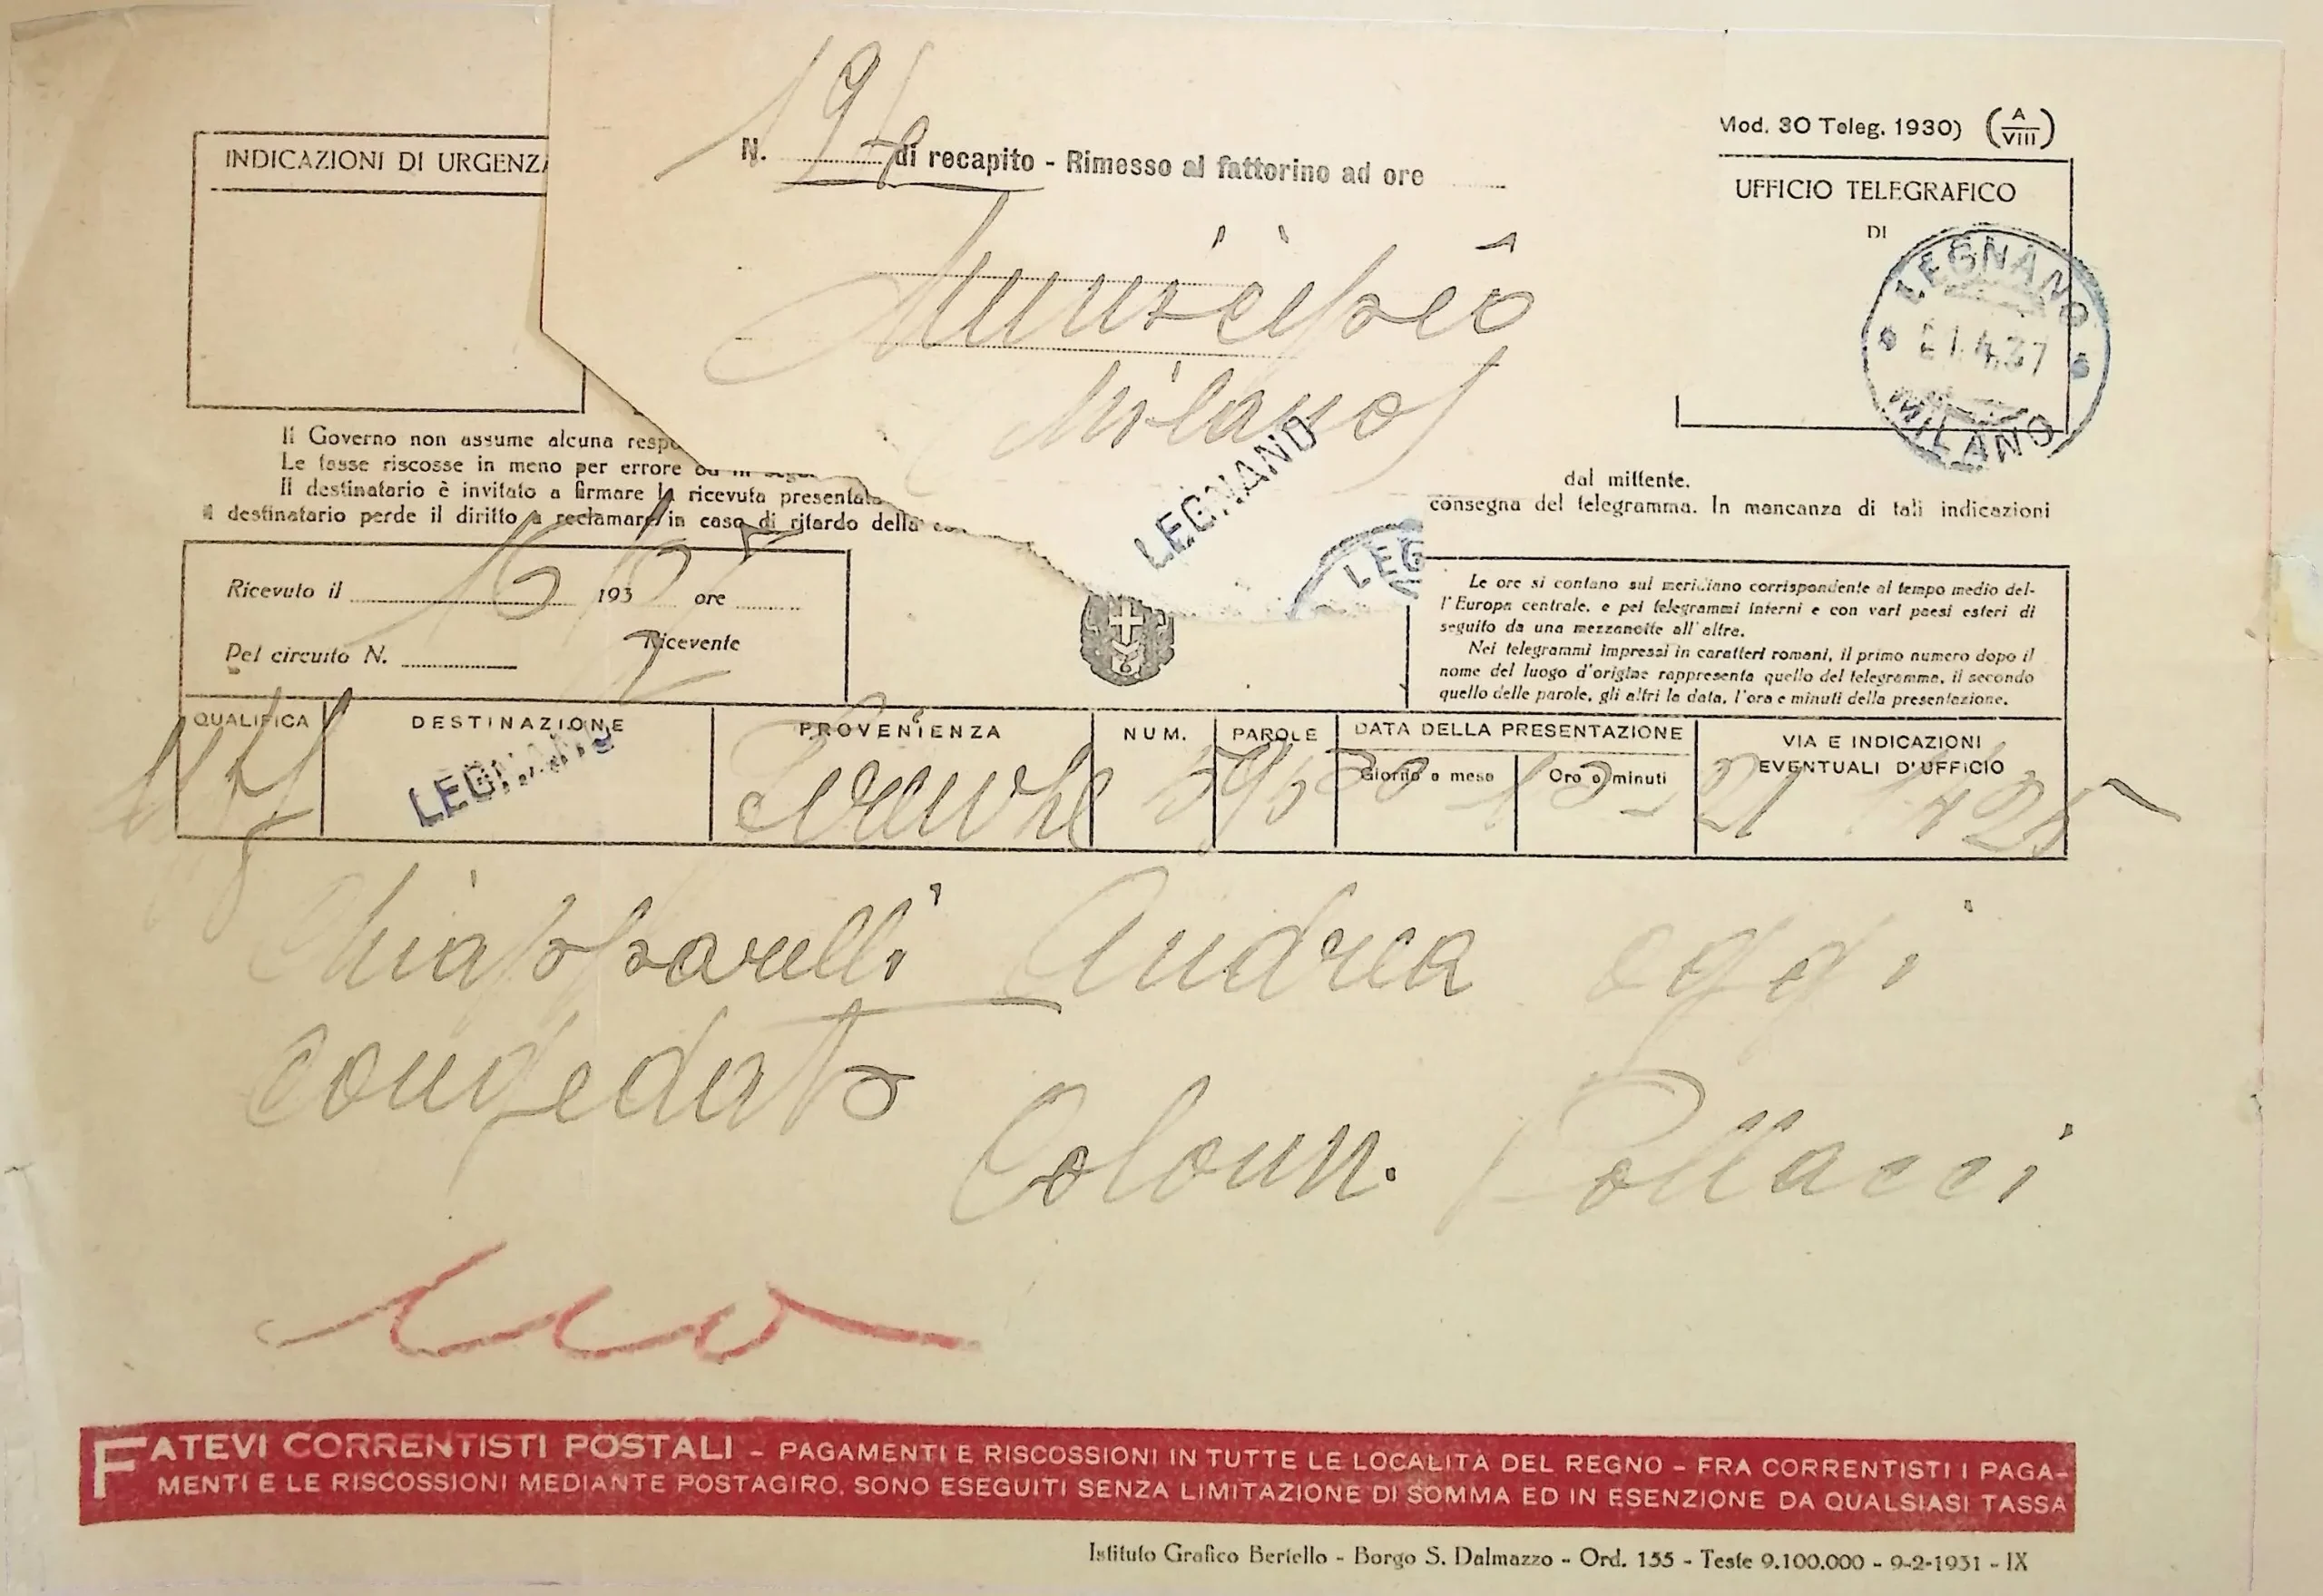 (Mod. 30 Teleg. 1930) (A/VIII)
INDICAZIONI DI URGENZA
N. di recapito - Rimesso al fattorino ad ore
UFFICIO TELEGRAFICO
DI
LEGNANO
21.4.37
MILANO
Municipio
Milano
LEGNANO
LEG
Il Governo non assume alcuna
Le tasse riscosse in meno per errore
dal mittente.
Il destinatario è invitato a firmare la ricevuta
consegna del telegramma. In mancanza di tali indicazioni
Il destinatario perde il diritto a reclamare in caso di ritardo della
Ricevuto il 193 ore
Pel circuito N. Ricevente
Le ore si contano sul meridiano corrispondente al tempo medio del-
l'Europa centrale, e pei telegrammi interni e con vari paesi esteri di
seguito da una mezzanotte all'altra.
Nei telegrammi impressi in caratteri romani, il primo numero dopo il
nome del luogo d'origine rappresenta quello del telegramma, il secondo
quello delle parole, gli altri la data, l'ora e minuti della presentazione.
QUALIFICA DESTINAZIONE PROVENIENZA NUM. PAROLE DATA DELLA PRESENTAZIONE VIA E INDICAZIONI
Giorno e mese Ore e minuti EVENTUALI D'UFFICIO
LEGNANO 21
Chiapparelli Andrea oggi
congedato
Colonn. Pollacci
FATEVI CORRENTISTI POSTALI – PAGAMENTI E RISCOSSIONI IN TUTTE LE LOCALITÀ DEL REGNO – FRA CORRENTISTI I PAGA-
MENTI E LE RISCOSSIONI MEDIANTE POSTAGIRO, SONO ESEGUITI SENZA LIMITAZIONE DI SOMMA ED IN ESENZIONE DA QUALSIASI TASSA
Istituto Grafico Bertello - Borgo S. Dalmazzo - Ord. 155 - Teste 9.100.000 - 9-2-1931 - IX